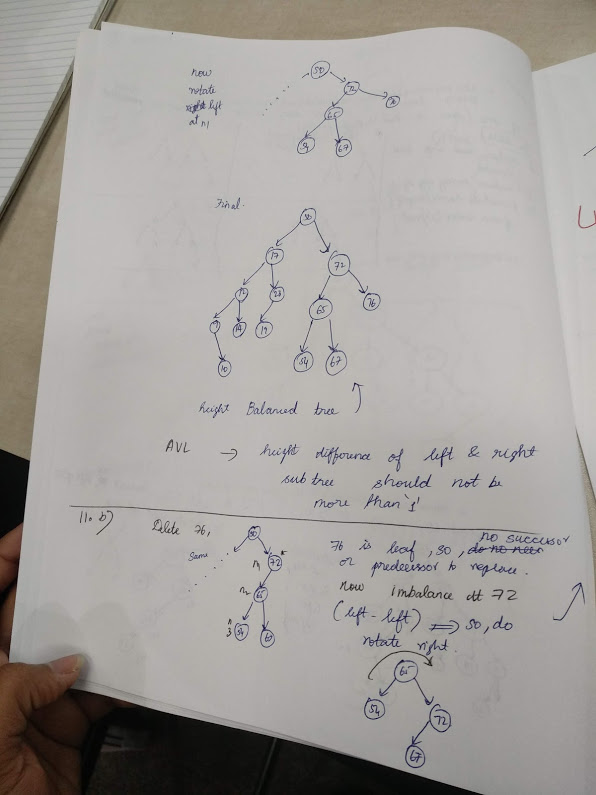 now
rotate
left
at n1
50
72
76
65
54
67
Final.
50
17
72
12
23
76
9
14
19
65
10
54
67
height Balanced tree
AVL → height difference of left & right
subtree should not be
more than '1'
11. b) Delete 76,
Same
50
n1 72
n2 65
n3 54
67
76 is leaf, so, no successor
or predecessor to replace.
now imbalance at 72
(left-left) ⇒ so, do
rotate right.
65
54
72
67